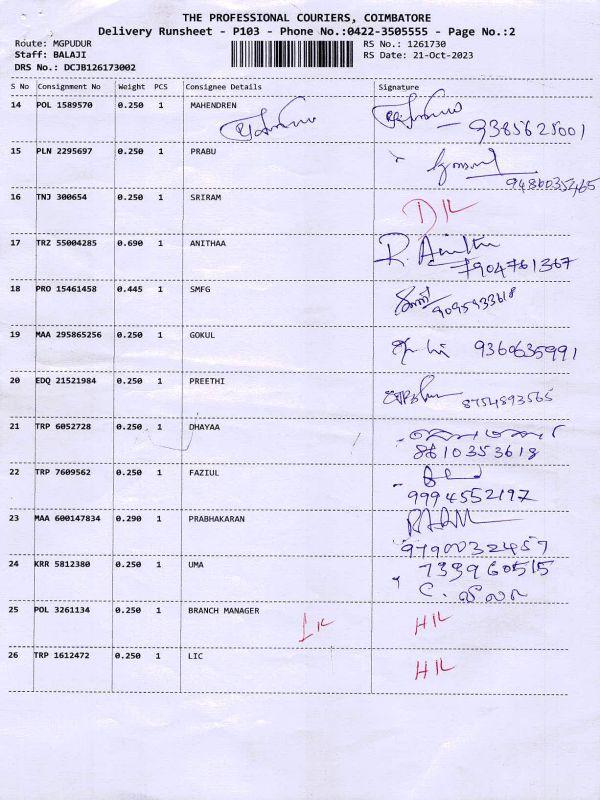 THE PROFESSIONAL COURIERS, COIMBATORE
Delivery Runsheet - P103 - Phone No.:0422-3505555 - Page No.:2
Route: MGPUDUR RS No.: 1261730
Staff: BALAJI RS Date: 21-Oct-2023
DRS No.: DCJB126173002
S No Consignment No Weight PCS Consignee Details Signature
14 POL 1589570 0.250 1 MAHENDREN
9385625001
15 PLN 2295697 0.250 1 PRABU
9480035465
16 TNJ 300654 0.250 1 SRIRAM
17 TRZ 55004285 0.690 1 ANITHAA R. Anitha
7904761367
18 PRO 15461458 0.445 1 SMFG
9095933618
19 MAA 295865256 0.250 1 GOKUL 9360635991
20 EDQ 21521984 0.250 1 PREETHI 8754893565
21 TRP 6052728 0.250 1 DHAYAA
8610353618
22 TRP 7609562 0.250 1 FAZIUL
9994552197
23 MAA 600147834 0.290 1 PRABHAKARAN
9790032457
24 KRR 5812380 0.250 1 UMA 733960515
25 POL 3261134 0.250 1 BRANCH MANAGER
26 TRP 1612472 0.250 1 LIC